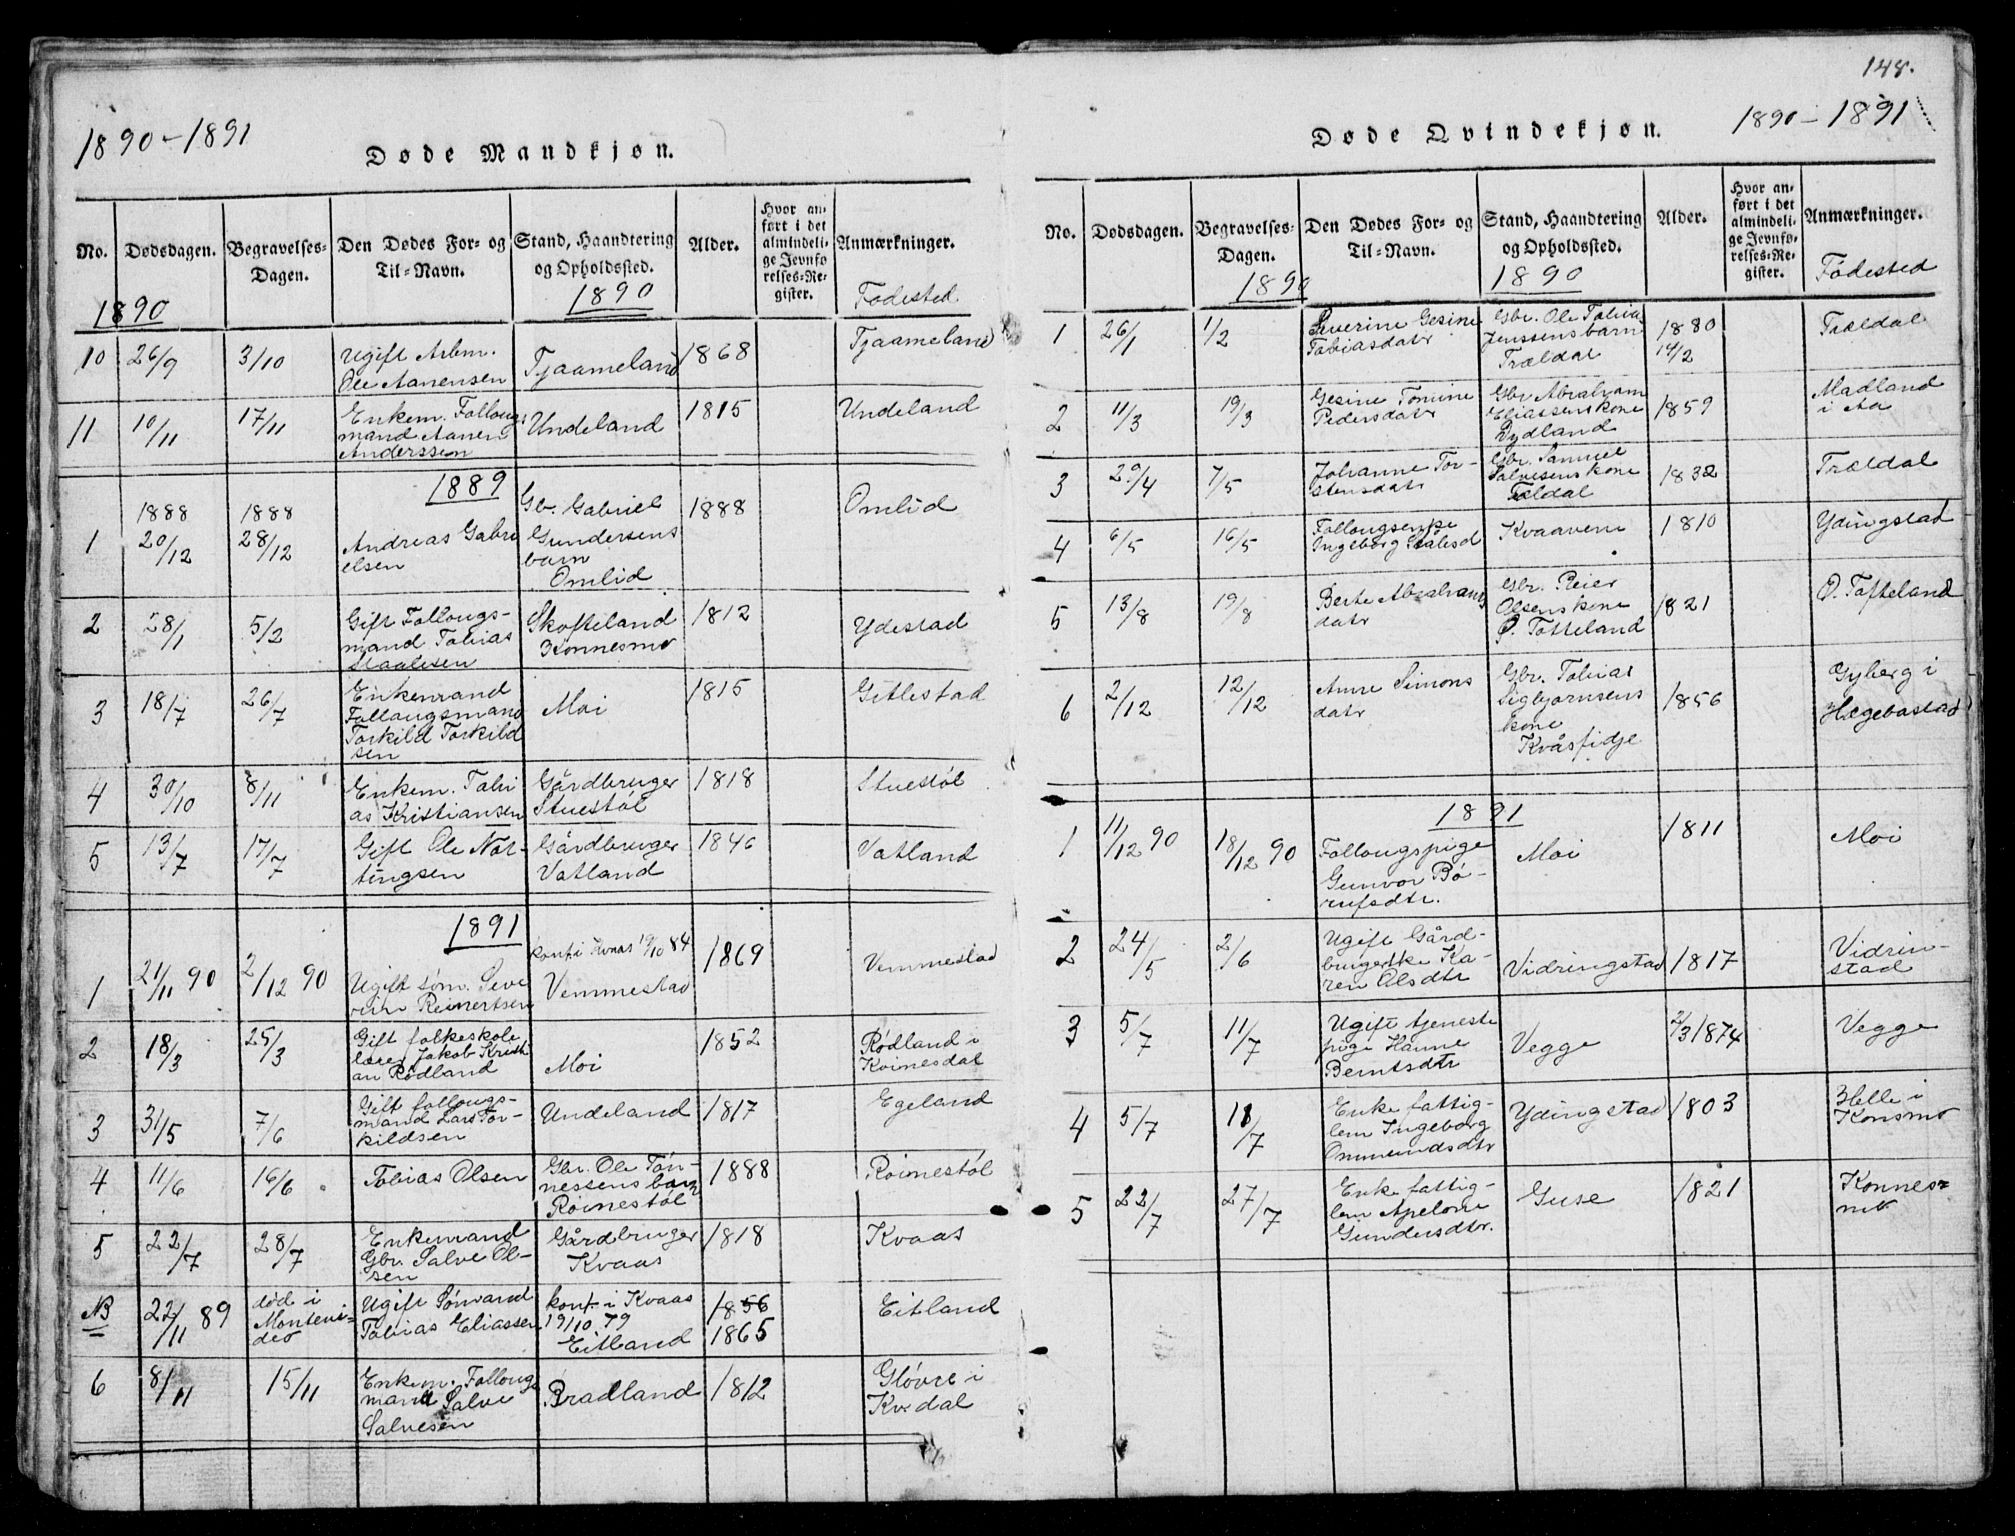 148.
1890-1891
Døde Mandkjøn.
No. Dødsdagen. Begravelses-Dagen. Den Dødes For- og Til-Navn. Stand, Haandtering og Opholdssted. Alder. Hvor anført i det almindelige Jevnførelses-Register. Anmærkninger.
1890 1890 Fødested
10 26/9 3/10 Ugift Arbm. Tjaameland 1868 Tjaameland
Ole Aanensen
11 10/11 17/11 Enkem. Follougs- Undeland 1815 Undeland
mand Aanen
Anderssen
1889
1 1888 1888 Andreas Gabri Gbr. Gabriel 1888 Omlid
20/12 28/12 elsen Gundersens
barn
Omlid
2 28/1 5/2 Gift Follougs- Skofteland 1812 Ydestad
mand Tobias Konnesmo
Staalesen
3 18/7 26/7 Enkemand Moi 1815 Gitlestad
Follougsmand
Torkild Torkild
sen
4 30/10 8/11 Enkem. Tobi Gårdbruger 1818 Stuestøl
as Kristiansen Stuestøl
5 13/7 17/7 Gift Ole Not- Gårdbruger 1846 Vatland
tingsen Vatland
1891
1 21/11 90 2/12 90 Ugift søm. Seve konf. i Kvaas 19/10 84 1869 Vemmestad
rin Reinertsen Vemmestad
2 18/3 25/3 Gift folkeskole Moi 1852 Rødland i
lærer Jakob Kristi Kvinesdal
an Rødland
3 31/5 7/6 Gift follougs- Undeland 1817 Egeland
mand Lars Tor-
kildsen
4 11/6 16/6 Tobias Olsen Gbr. Ole Tøn- 1888 Røinestøl
nessens barn
Røinestøl
5 22/7 28/7 Enkemand Gårdbruger 1818 Kvaas
Gbr. Salve Ol- Kvaas
sen
NB 22/11 89 død i Ugift Sømand konf. i Kvaas 1856 Eitland
Montevi- Tobias Eliassen 19/10 79 1865
deo Eitland
6 8/11 15/11 Enkem. Follougs Bradland 1812 Gløvre i
mand Salve Kv.dal
Salvesen
Døde Qvindekjøn.
1890-1891
No. Dødsdagen. Begravelses-Dagen. Den Dødes For- og Til-Navn. Stand, Haandtering og Opholdssted. Alder. Hvor anført i det almindelige Jevnførelses-Register. Anmærkninger.
1890 1890 Fødested
1 26/1 1/2 Severine Gesine Gbr. Ole Tobias 1880 Trældal
Tobiasdatr Jenssens barn 14/2
Trældal
2 11/3 19/3 Gesine Tomine Gbr Abraham 1859 Madland
Pedersdatr Eliassens kone i Aa
Dydland
3 29/4 7/5 Johanne Tor- Gbr. Samuel 1832 Trældal
stensdatr Salvesens kone
Trældal
4 6/5 16/5 Follougsenke Kvaavene 1810 Ydingstad
Ingeborg Staalesd
5 13/8 19/8 Berte Abrahams Gbr. Reier 1821 Ø. Tofteland
datr Olsens kone
Ø. Tofteland
6 2/12 12/12 Anne Simons Gbr. Tobias 1856 Gyberg i
datr Sigbjørnsens Hægebostad
kone
Kvåsfidje
1891
1 11/12 90 18/12 90 Follougspige Moi 1811 Moi
Gunvor Bø-
rufsdtr.
2 24/5 2/6 Ugift Gård- Vidringstad 1817 Vidrin-
brugerske Ka- stad
ren Olsdtr
3 5/7 11/7 Ugift tjeneste Vegge 2/3 1874 Vegge
pige Hanne
Berntsdtr
4 5/7 11/7 Enke fattig- Ydingstad 1803 Helle i
lem Ingeborg Konsmo
Ommundsdtr
5 22/7 27/7 Enke fattig- Guse 1821 Konnes-
lem Apelone mo
Gundersdtr.